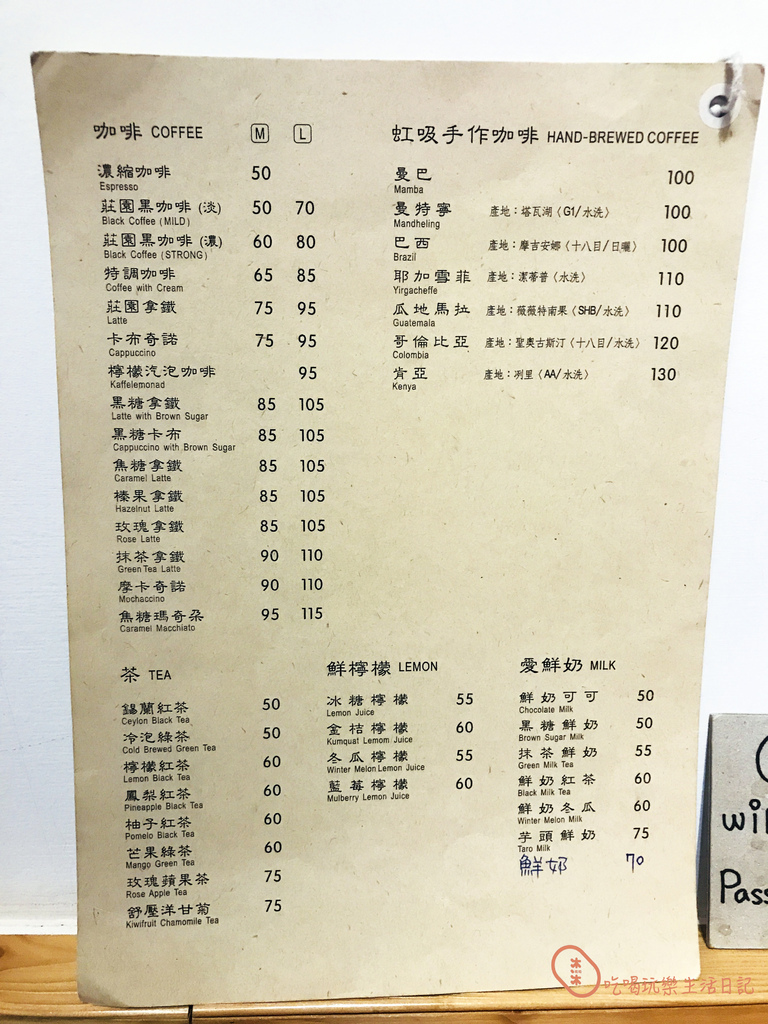 咖啡 COFFEE M L
濃縮咖啡 50
Espresso
莊園黑咖啡 (淡) 50 70
Black Coffee (MILD)
莊園黑咖啡 (濃) 60 80
Black Coffee (STRONG)
特調咖啡 65 85
Coffee with Cream
莊園拿鐵 75 95
Latte
卡布奇諾 75 95
Cappuccino
檸檬汽泡咖啡 95
Kaffelemonad
黑糖拿鐵 85 105
Latte with Brown Sugar
黑糖卡布 85 105
Cappuccino with Brown Sugar
焦糖拿鐵 85 105
Caramel Latte
榛果拿鐵 85 105
Hazelnut Latte
玫瑰拿鐵 85 105
Rose Latte
抹茶拿鐵 90 110
Green Tea Latte
摩卡奇諾 90 110
Mochaccino
焦糖瑪奇朵 95 115
Caramel Macchiato
虹吸手作咖啡 HAND-BREWED COFFEE
曼巴 100
Mamba
曼特寧 產地：塔瓦湖〈G1/水洗〉 100
Mandheling
巴西 產地：摩吉安娜〈十八目/日曬〉 100
Brazil
耶加雪菲 產地：潔蒂普〈水洗〉 110
Yirgacheffe
瓜地馬拉 產地：薇薇特南果〈SHB/水洗〉 110
Guatemala
哥倫比亞 產地：聖奧古斯汀〈十八目/水洗〉 120
Colombia
肯亞 產地：冽里〈AA/水洗〉 130
Kenya
茶 TEA
錫蘭紅茶 50
Ceylon Black Tea
冷泡綠茶 50
Cold Brewed Green Tea
檸檬紅茶 60
Lemon Black Tea
鳳梨紅茶 60
Pineapple Black Tea
柚子紅茶 60
Pomelo Black Tea
芒果綠茶 60
Mango Green Tea
玫瑰蘋果茶 75
Rose Apple Tea
舒壓洋甘菊 75
Kiwifruit Chamomile Tea
鮮檸檬 LEMON
冰糖檸檬 55
Lemon Juice
金桔檸檬 60
Kumquat Lemom Juice
冬瓜檸檬 55
Winter Melon Lemon Juice
藍莓檸檬 60
Mulberry Lemon Juice
愛鮮奶 MILK
鮮奶可可 50
Chocolate Milk
黑糖鮮奶 50
Brown Sugar Milk
抹茶鮮奶 55
Green Milk Tea
鮮奶紅茶 60
Black Milk Tea
鮮奶冬瓜 60
Winter Melon Milk
芋頭鮮奶 75
Taro Milk
鮮奶 70
wi
Pass
吃喝玩樂生活日記